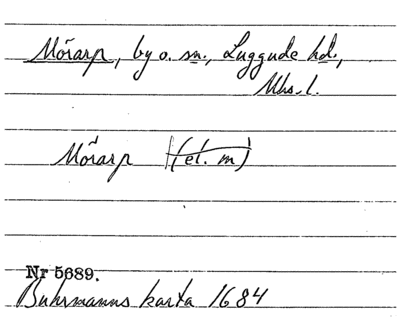 Mörarp, by o. sn., Luggude hd.,
Mhs. l.
Mörarp (el. m)
Nr 5689.
Buhrmanns karta 1684